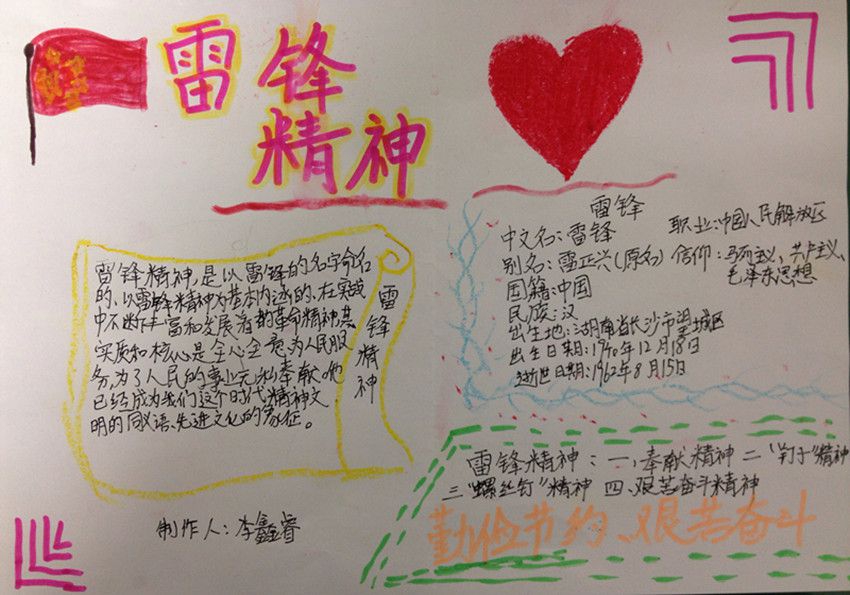 雷锋
精神
雷锋精神,是以雷锋的名字命名
的,以雷锋精神为基本内涵的,在实践
中不断丰富和发展着的革命精神,其
实质和核心是全心全意为人民服
务,为了人民的事业无私奉献。他
已经成为我们这个时代精神文
明的同义语、先进文化的象征。
雷锋精神
制作人:李鑫睿
雷锋
中文名:雷锋
别名:雷正兴(原名)
国籍:中国
民族:汉
出生地:湖南省长沙市望城区
出生日期:1940年12月18日
逝世日期:1962年8月15日
职业:中国人民解放区
信仰:马列主义、共产主义、
毛泽东思想
雷锋精神:一、奉献精神 二“钉子”精神
三“螺丝钉”精神 四、艰苦奋斗精神
勤俭节约、艰苦奋斗